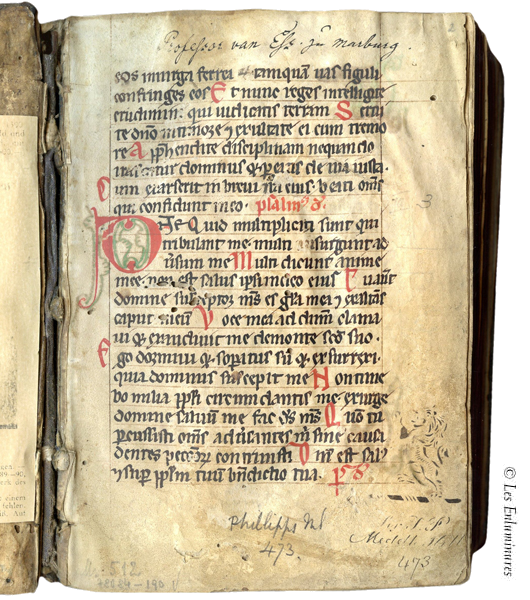 Professor van Eſs. zu Marburg.
2
eos in virga ferrei & tanquā uas figuli
confringes eos Et nunc reges intelligite
erudimini qui iudicatis terram Serui
te dn̄o in timore ⁊ exultate ei cum tremo
re Apphendite disciplinam nequando
irascatur dominus ⁊ pereatis de uia iusta
um exarserit in breui ira eius beati om̄s
qui confidunt in eo. psalm⁹ 3.
Dn̄e Quid multiplicati sunt qui
tribulant me multi insurgunt ad
uersum me Multi dicunt anime
mee non est salus ipsi in deo eius Tu aut̄
domine susceptor m̄s es gl̄a mea ⁊ exaltās
caput meum Voce mea ad dn̄m clama
ui ⁊ exaudiuit me de monte sc̄o suo
go dormiui ⁊ soporatus sū ⁊ exsurrexi
quia dominus suscepit me Non time
bo milia ppl̄i circumdantis me exurge
domine saluum me fac ds̄ m̄s Qm̄ tu
percussisti om̄s aduersantes m̄ sine causa
dentes peccatorū contriuisti Dn̄i est salus
⁊ super ppl̄m tuum bn̄dictio tua. ps
3
Phillipps MS
473
473
© Les Enluminures